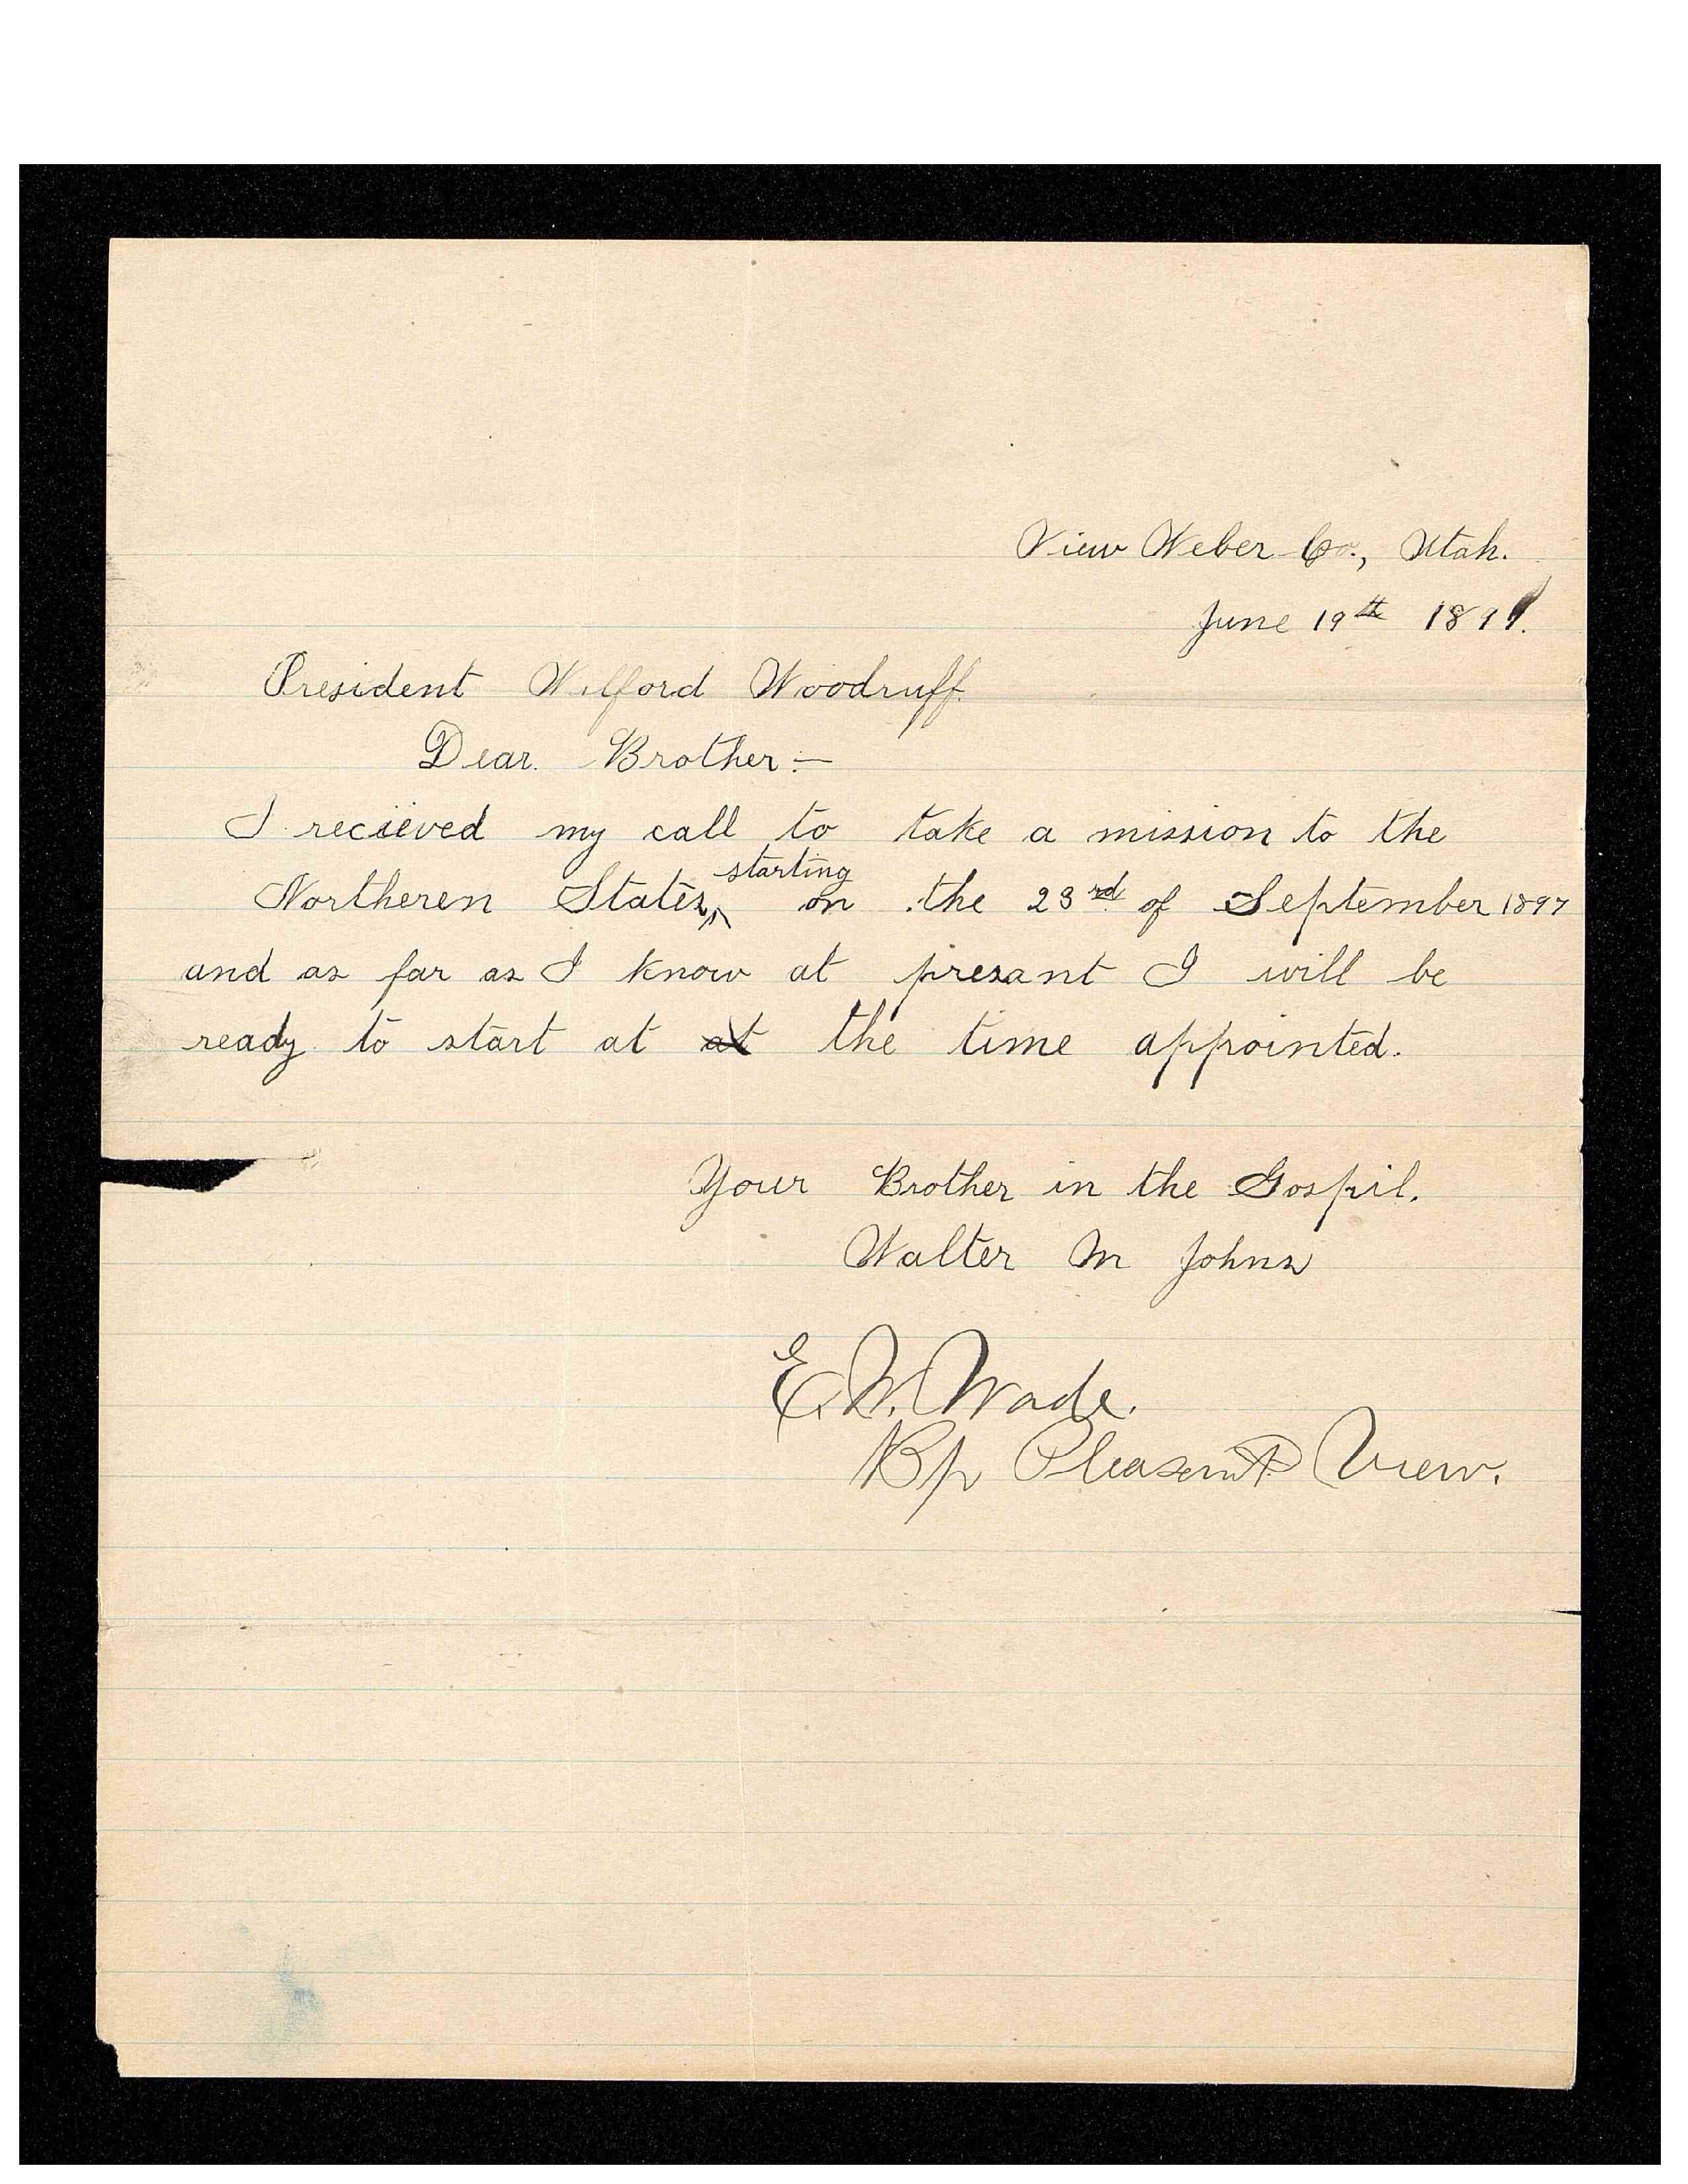 View Weber Co., Utah.
June 19th 1897.
President Wilford Woodruff.
Dear. Brother:—
I recieved my call to take a mission to the
starting
Northeren States, ^ on the 23rd of September 1897
and as far as I know at presant I will be
ready to start at at the time appointed.
Your Brother in the Gospil.
Walter M Johns
E. W. Wade.
Bp Pleasant View.